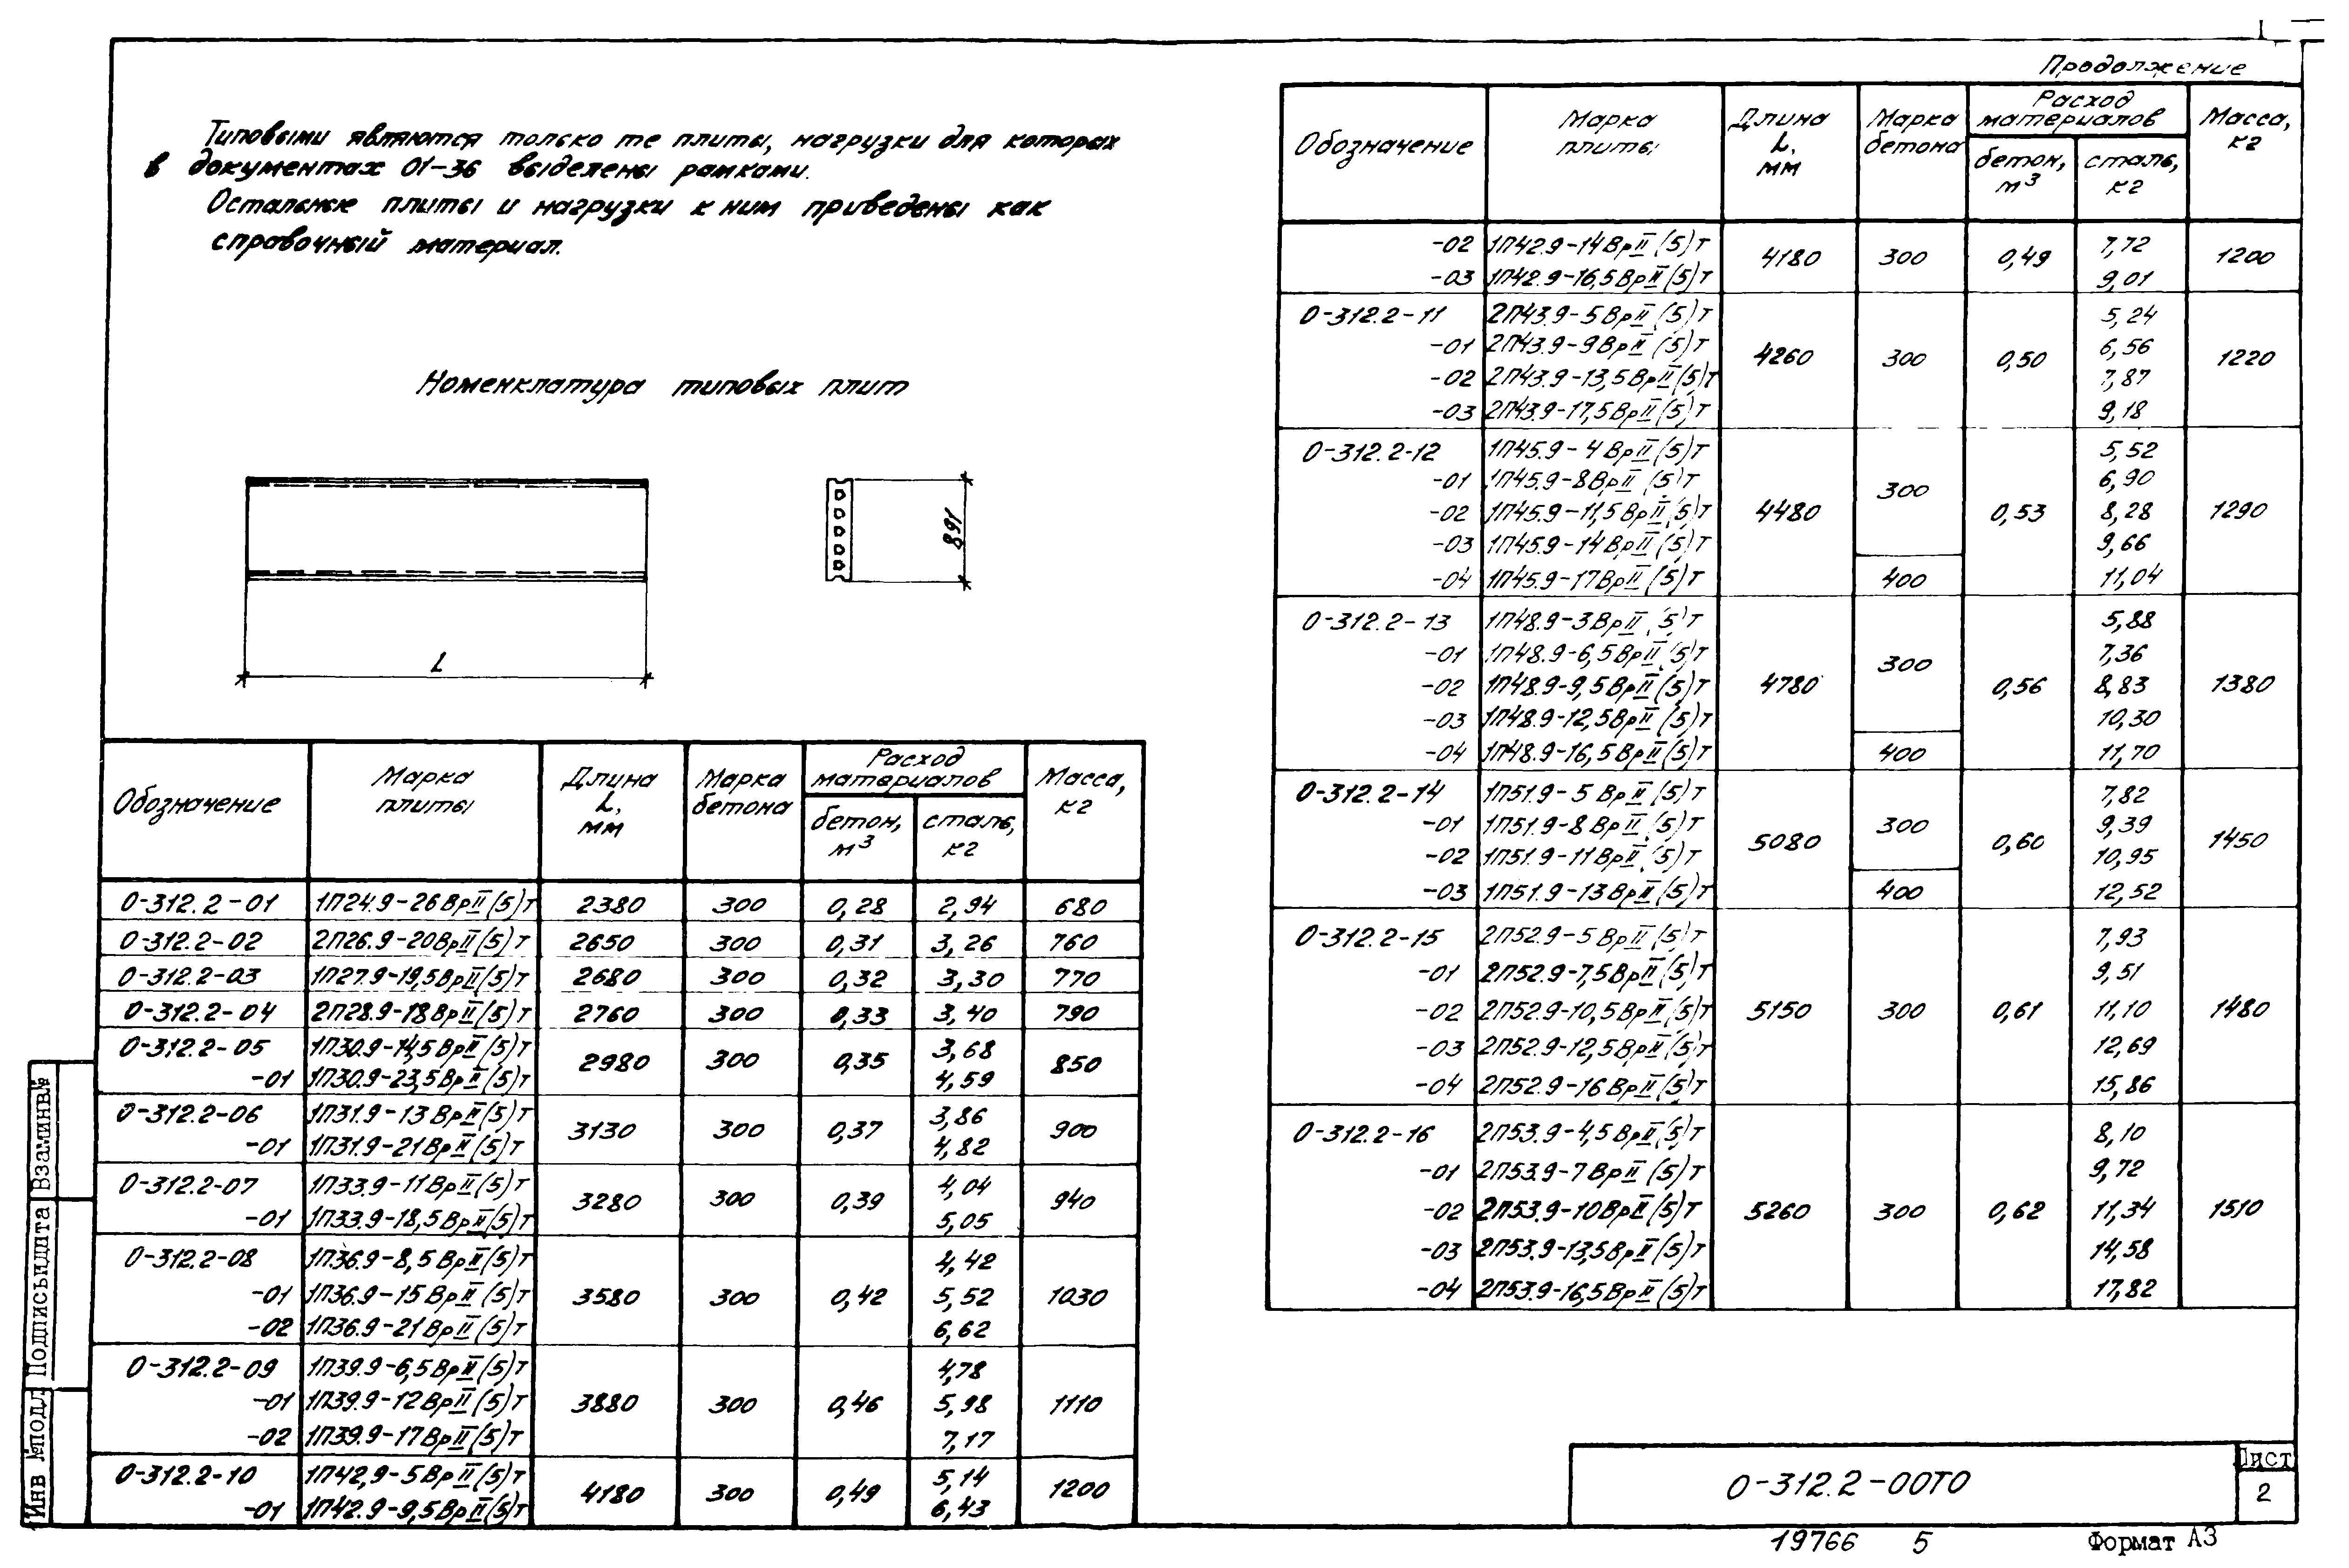 Типовыми являются только те плиты, нагрузки для которых
в документах 01-36 выделены рамками.
Остальные плиты и нагрузки к ним приведены как
справочный материал.
Номенклатура типовых плит
L
891
Обозначение | Марка плиты | Длина L, мм | Марка бетона | Расход материалов | Масса, кг
бетон, м³ | сталь, кг
0-312.2-01 | 1П24.9-26ВрII(5)т | 2380 | 300 | 0,28 | 2,94 | 680
0-312.2-02 | 2П26.9-20ВрII(5)т | 2650 | 300 | 0,31 | 3,26 | 760
0-312.2-03 | 1П27.9-19,5ВрII(5)т | 2680 | 300 | 0,32 | 3,30 | 770
0-312.2-04 | 2П28.9-18ВрII(5)т | 2760 | 300 | 0,33 | 3,40 | 790
0-312.2-05 | 1П30.9-14,5ВрII(5)т | 2980 | 300 | 0,35 | 3,68 | 850
-01 | 1П30.9-23,5ВрII(5)т | 4,59
0-312.2-06 | 1П31.9-13ВрII(5)т | 3130 | 300 | 0,37 | 3,86 | 900
-01 | 1П31.9-21ВрII(5)т | 4,82
0-312.2-07 | 1П33.9-11ВрII(5)т | 3280 | 300 | 0,39 | 4,04 | 940
-01 | 1П33.9-18,5ВрII(5)т | 5,05
0-312.2-08 | 1П36.9-8,5ВрII(5)т | 4,42
-01 | 1П36.9-15ВрII(5)т | 3580 | 300 | 0,42 | 5,52 | 1030
-02 | 1П36.9-21ВрII(5)т | 6,62
0-312.2-09 | 1П39.9-6,5ВрII(5)т | 4,78
-01 | 1П39.9-12ВрII(5)т | 3880 | 300 | 0,46 | 5,98 | 1110
-02 | 1П39.9-17ВрII(5)т | 7,17
0-312.2-10 | 1П42,9-5ВрII(5)т | 4180 | 300 | 0,49 | 5,14 | 1200
-01 | 1П42.9-9,5ВрII(5)т | 6,43
Продолжение
Обозначение | Марка плиты | Длина L, мм | Марка бетона | Расход материалов | Масса, кг
бетон, м³ | сталь, кг
-02 | 1П42.9-14ВрII(5)т | 4180 | 300 | 0,49 | 7,72 | 1200
-03 | 1П42.9-16,5ВрII(5)т | 9,01
0-312.2-11 | 2П43.9-5ВрII(5)т | 5,24
-01 | 2П43.9-9ВрII(5)т | 4260 | 300 | 0,50 | 6,56 | 1220
-02 | 2П43.9-13,5ВрII(5)т | 7,87
-03 | 2П43.9-17,5ВрII(5)т | 9,18
0-312.2-12 | 1П45.9-4ВрII(5)т | 5,52
-01 | 1П45.9-8ВрII(5)т | 300 | 6,90
-02 | 1П45.9-11,5ВрII(5)т | 4480 | 0,53 | 8,28 | 1290
-03 | 1П45.9-14ВрII(5)т | 9,66
-04 | 1П45.9-17ВрII(5)т | 400 | 11,04
0-312.2-13 | 1П48.9-3ВрII(5)т | 5,88
-01 | 1П48.9-6,5ВрII(5)т | 300 | 7,36
-02 | 1П48.9-9,5ВрII(5)т | 4780 | 0,56 | 8,83 | 1380
-03 | 1П48.9-12,5ВрII(5)т | 10,30
-04 | 1П48.9-16,5ВрII(5)т | 400 | 11,70
0-312.2-14 | 1П51.9-5ВрII(5)т | 7,82
-01 | 1П51.9-8ВрII(5)т | 5080 | 300 | 0,60 | 9,39 | 1450
-02 | 1П51.9-11ВрII(5)т | 10,95
-03 | 1П51.9-13ВрII(5)т | 400 | 12,52
0-312.2-15 | 2П52.9-5ВрII(5)т | 7,93
-01 | 2П52.9-7,5ВрII(5)т | 9,51
-02 | 2П52.9-10,5ВрII(5)т | 5150 | 300 | 0,61 | 11,10 | 1480
-03 | 2П52.9-12,5ВрII(5)т | 12,69
-04 | 2П52.9-16ВрII(5)т | 15,86
0-312.2-16 | 2П53.9-4,5ВрII(5)т | 8,10
-01 | 2П53.9-7ВрII(5)т | 9,72
-02 | 2П53.9-10ВрII(5)т | 5260 | 300 | 0,62 | 11,34 | 1510
-03 | 2П53.9-13,5ВрII(5)т | 14,58
-04 | 2П53.9-16,5ВрII(5)т | 17,82
Инв №подл Подпись и дата Взам.инв№
0-312.2-00ТО
Лист
2
19766 5 Формат А3